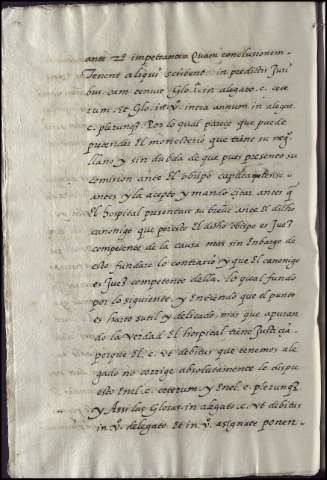 ante 2ᵃ impetrantem Quam conclusionem
tenent aliqui scribent. in predictis Juri
bus eam tenue Glo. i. in alegato. c. cete
rum. Et Glo. in. v. intra annum in alega.
c. plerunqz Por lo qual pareçe que puede
pretender El monesterio que tiene su
llano y sin dubda de que pues presento su
comision ante El obispo
antes y la acepto y mando citar antes q̄
El hospital presentase su breue ante El dicho
canonigo que por esto El dicho obispo es Juez
competente de la causa mas sin Embargo de
esto fundare lo contrario y que El canonigo
es Juez competente della. lo qual fundo
por lo siguiente y Entiendo que el punto
es harto sutil y delicado, mas que apuran
do la verdad El hospital tiene Justicia
porque El. c. vt debitus que tenemos ale
gado no corrige absolutamente lo dispu
esto Enel. c. ceterum. y Enel. c. plerunqz
y Assi las Glosas. in alegato. c. vt debitus
in. v. delegato Et in. v. asignate ponen